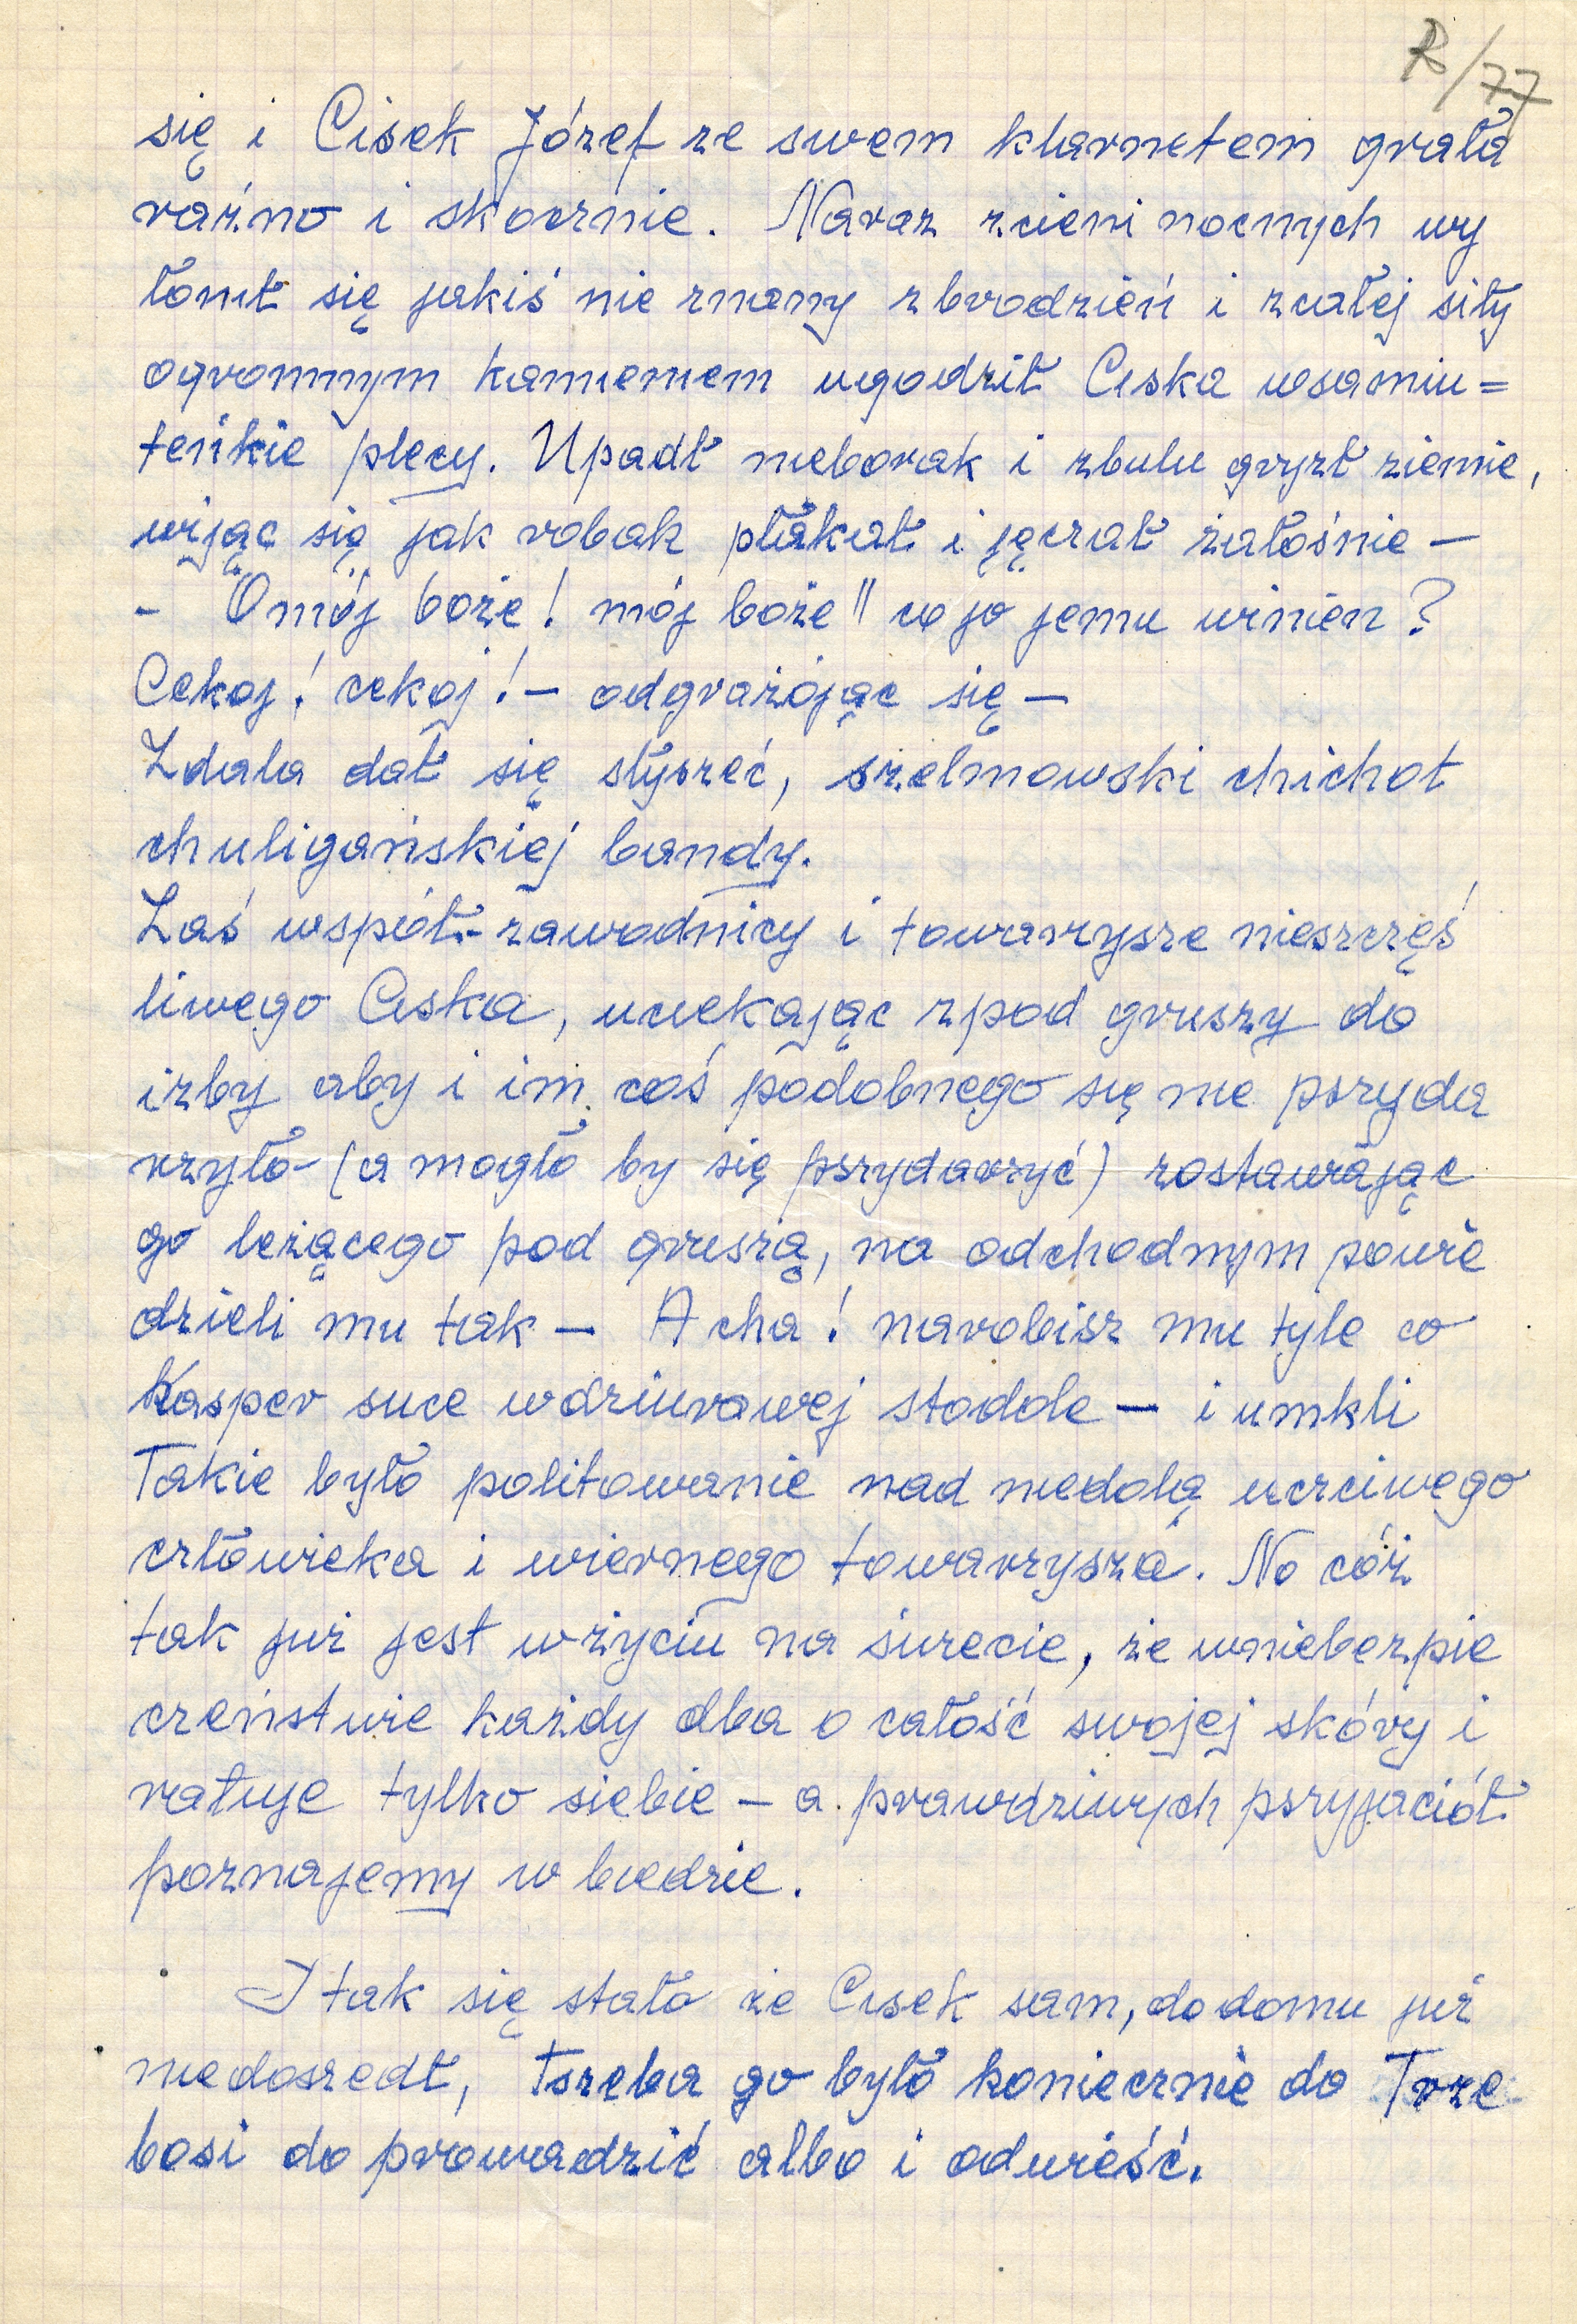 R/77
się i Cisek Józef ze swem klarnetem grała
raźno i skocznie. Naraz zcieni nocnych wy
łonił się jakiś nie znany zbrodzień i zcałej siły
ogromnym kamieniem ugodził Ciska wsamiu=
teńkie plecy. Upadł nieborak i zbulu gryzł ziemie,
wijąc się jak robak płakał i jęczał żałośnie —
- "O mój boże! mój boże" co jo jemu winien?
Cekoj! cekoj! — odgrażójąc się —
Zdala dał się słyszeć, szelmowski chichot
chuligańskiej bandy.
Zaś wspót-zawodnicy i towarzysze nieszczęś
liwego Ciska, uciekając zpod gruszy do
izby aby i im coś podobnego się nie pszyda
rzyło - (a mogło by się pszydarzyć) zostawiając
go leżącego pod gruszą, na odchodnym powie
dzieli mu tak — A cha! narobisz mu tyle co
Kasper suce wdziurawej stodole — i umkli
Takie było politowanie nad niedolą uczciwego
człowieka i wiernego towarzysza. No cóż
tak już jest wżyciu na świecie, że wniebezpie
czeństwie każdy dba o całość swojej skóry i
ratuje tylko siebie — a prawdziwych pszyjaciół
poznajemy w biedzie.
I tak się stało że Cisek sam, do domu już
niedoszedł, tszeba go było koniecznie do Trze
bosi do prowadzić albo i odwieść.